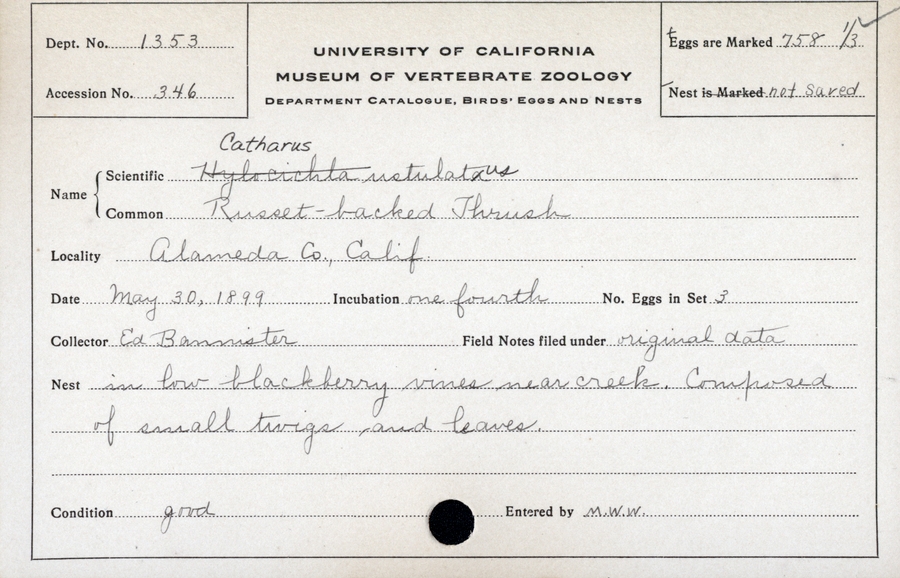 Dept. No. 1353
Accession No. 346
UNIVERSITY OF CALIFORNIA
MUSEUM OF VERTEBRATE ZOOLOGY
DEPARTMENT CATALOGUE, BIRDS' EGGS AND NESTS
Eggs are Marked 758 1/3
Nest is Marked not saved
Catharus
Name Scientific Hylocichla ustulataus
Common Russet-backed Thrush
Locality Alameda Co., Calif.
Date May 30, 1899 Incubation one fourth No. Eggs in Set 3
Collector Ed Bannister Field Notes filed under original data
Nest in low blackberry vines near creek. Composed
of small twigs and leaves.
Condition good Entered by M.W.W.